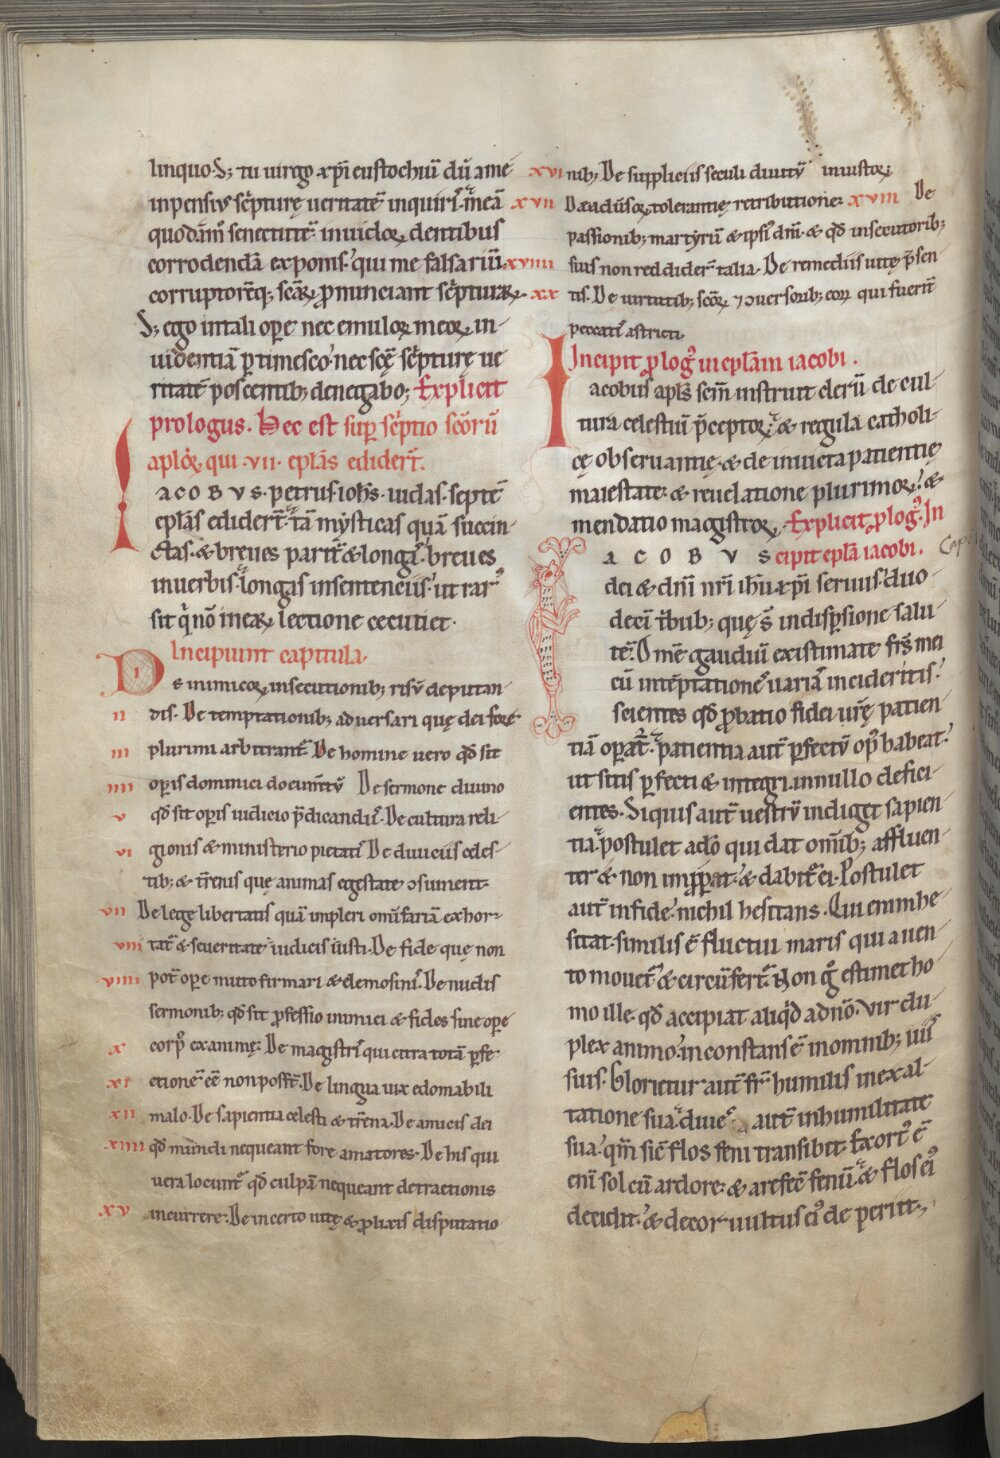 linquo. S; tu uirgo xp̄i eustochiū dū a me
inpensiꝰ sc̄pturę ueritatē inquiris. meā
quodāmō senectutē inuidoꝝ dentibus
corrodendā exponis. qui me falsariū
corruptorēq; scāꝝ pronunciant sc̄pturaꝝ.
S; ego in tali oꝑe nec emuloꝝ meoꝝ in-
uidentiā ꝑtimesco. nec scē sc̄pturę ue
ritatē poscentib; denegabo; Explicit
prologus. Hec est sup̄ sc̄ptio scōrū
aplōꝝ qui .vii. eplās ediderᷓt.
IACOBVS. petrus. iohs̄. iudas. septē
eplās ediderᷓt. tā mysticas quā succin-
ctas. & breues parit̄ & longas. breues
in uerbis. longas in sententiis. ut rarꝰ
sit q̇ nō in eaꝝ lectione cecutiet.
Incipiunt capitula.
I De inimicoꝝ insecutionib; risu deputan-
ii dis. De temptationib; aduersari quę dei fore
iii plurimi arbitrant̄ De homine uero qd̄ sit
iiii oꝑis dominici documtū De sermone diuino
v qd̄ sit oꝑis iudicio p̄dicandū. De cultura reli-
vi gionis & ministerio pietatis De diuiciis celes-
tib; & tr̄enis quę animas egestate ɔsument.
vii De lege libertatis quā impleri omifariā exhor-
viii tat̄ & seueritate iudicis iusti. De fide que non
viiii pot̄ oꝑe mutuo firmari & elemosinis. De nudis
sermonib; qd̄ sit ꝓfessio inimici & fides sine oꝑe
x corpꝰ exanime. De magistris qui citra totā ꝑfe-
xi ctionē eē non possᷓt. De lingua uix edomabili
xii malo. De sapientia celesti & tr̄ena. De amicis dei
xiiii qd̄ mundi nequeant fore amatores. De his qui
uera locunt̄ qd̄ culpā nequeant detractionis
xv incurrere. De incerto uitę & prolixis disputatio
xvi nib; De suppliciis seculi diuitū iniustoꝝ
xvii De aduersoꝝ tolerantię retributione. xviii De
passionib; martyrū & ipsiꝰ dn̄i. & qd̄ insecutorib;
xviiii suis non reddiderᷓt talia. De remediis uitę p̄sen
xx tis. De uirtutib; scōꝝ ⁊ ɔuersorib; eoꝝ qui fuerīt
peccatis astricti.
Incipit ꝓlogꝰ in eplām iacobi.
Iacobus apl̄s scm̄ instruit clerū de cul-
tura celestiū p̄ceptoꝝ. & regula catholi-
cę obseruantię. & de inuicta patientię
maiestate. & reuelatione plurimoꝝ. &
mendatio magistroꝝ. Explicit ꝓlogꝰ. In
IACOBVS cipit eplā iacobi. Cap.
dei & dn̄i nr̄i ih̄u xp̄i seruus. duo-
decī t̄bub; quę s̄ in dispersione salu-
tē. Omē gaudiū existimate fr̄s mei
cū in tēptationes uarias incideritis.
scientes qd̄ ꝓbatio fidei ur̄ę patien
tiā oꝑat̄. patientia aut̄ ꝑfectū opꝰ habeat.
ut sitis ꝑfecti & integri. in nullo defici-
entes. Si quis aut̄ uestrū indiget sapien
tia. postulet a dō qui dat omīb; affluen-
ter & non imꝓꝑat. & dabit̄ ei. Postulet
aut̄ in fide. nichil hesitans. Qui enim he-
sitat. similis ē fluctui maris qui a uen-
to mouet̄ & circūfert̄. Non ḡ estimet ho-
mo ille. qd̄ accipiat aliq̇d a dnō. Vir du-
plex animo. inconstans ē in omnib; uiis
suis. Glorietur aut̄ fr̄ humilis in exal-
tatione sua. diues aut̄ in humilitate
sua. qm̄ sic̄ flos feni transibit. Exortꝰ ē
enī sol cū ardore. & arefec̄ fenū. & flos eiꝰ
decidit. & decor uultus eiꝰ deperiit.